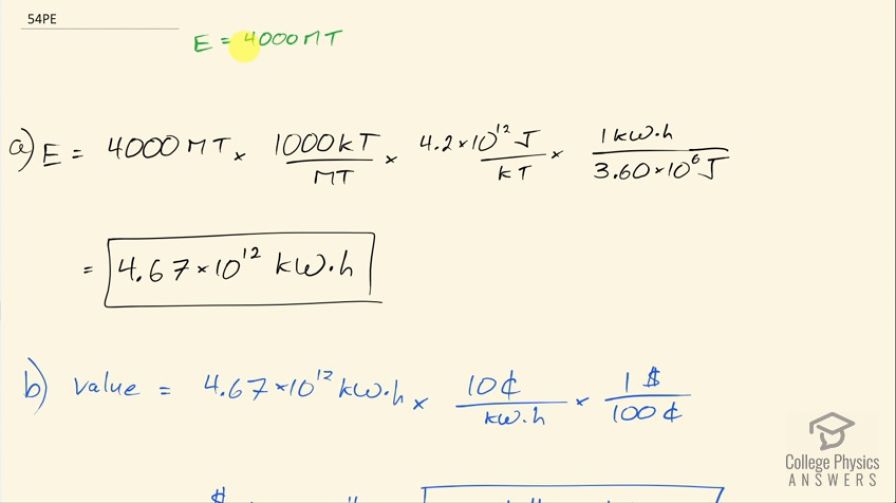 54PE
E = 4000 MT
a) E = 4000 MT × 1000 kT / MT × 4.2×10¹² J / kT × 1 kW·h / 3.60×10⁶ J
= 4.67×10¹² kW·h
b) value = 4.67×10¹² kW·h × 10¢ / kW·h × 1 $ / 100 ¢
$
College Physics
ANSWERS